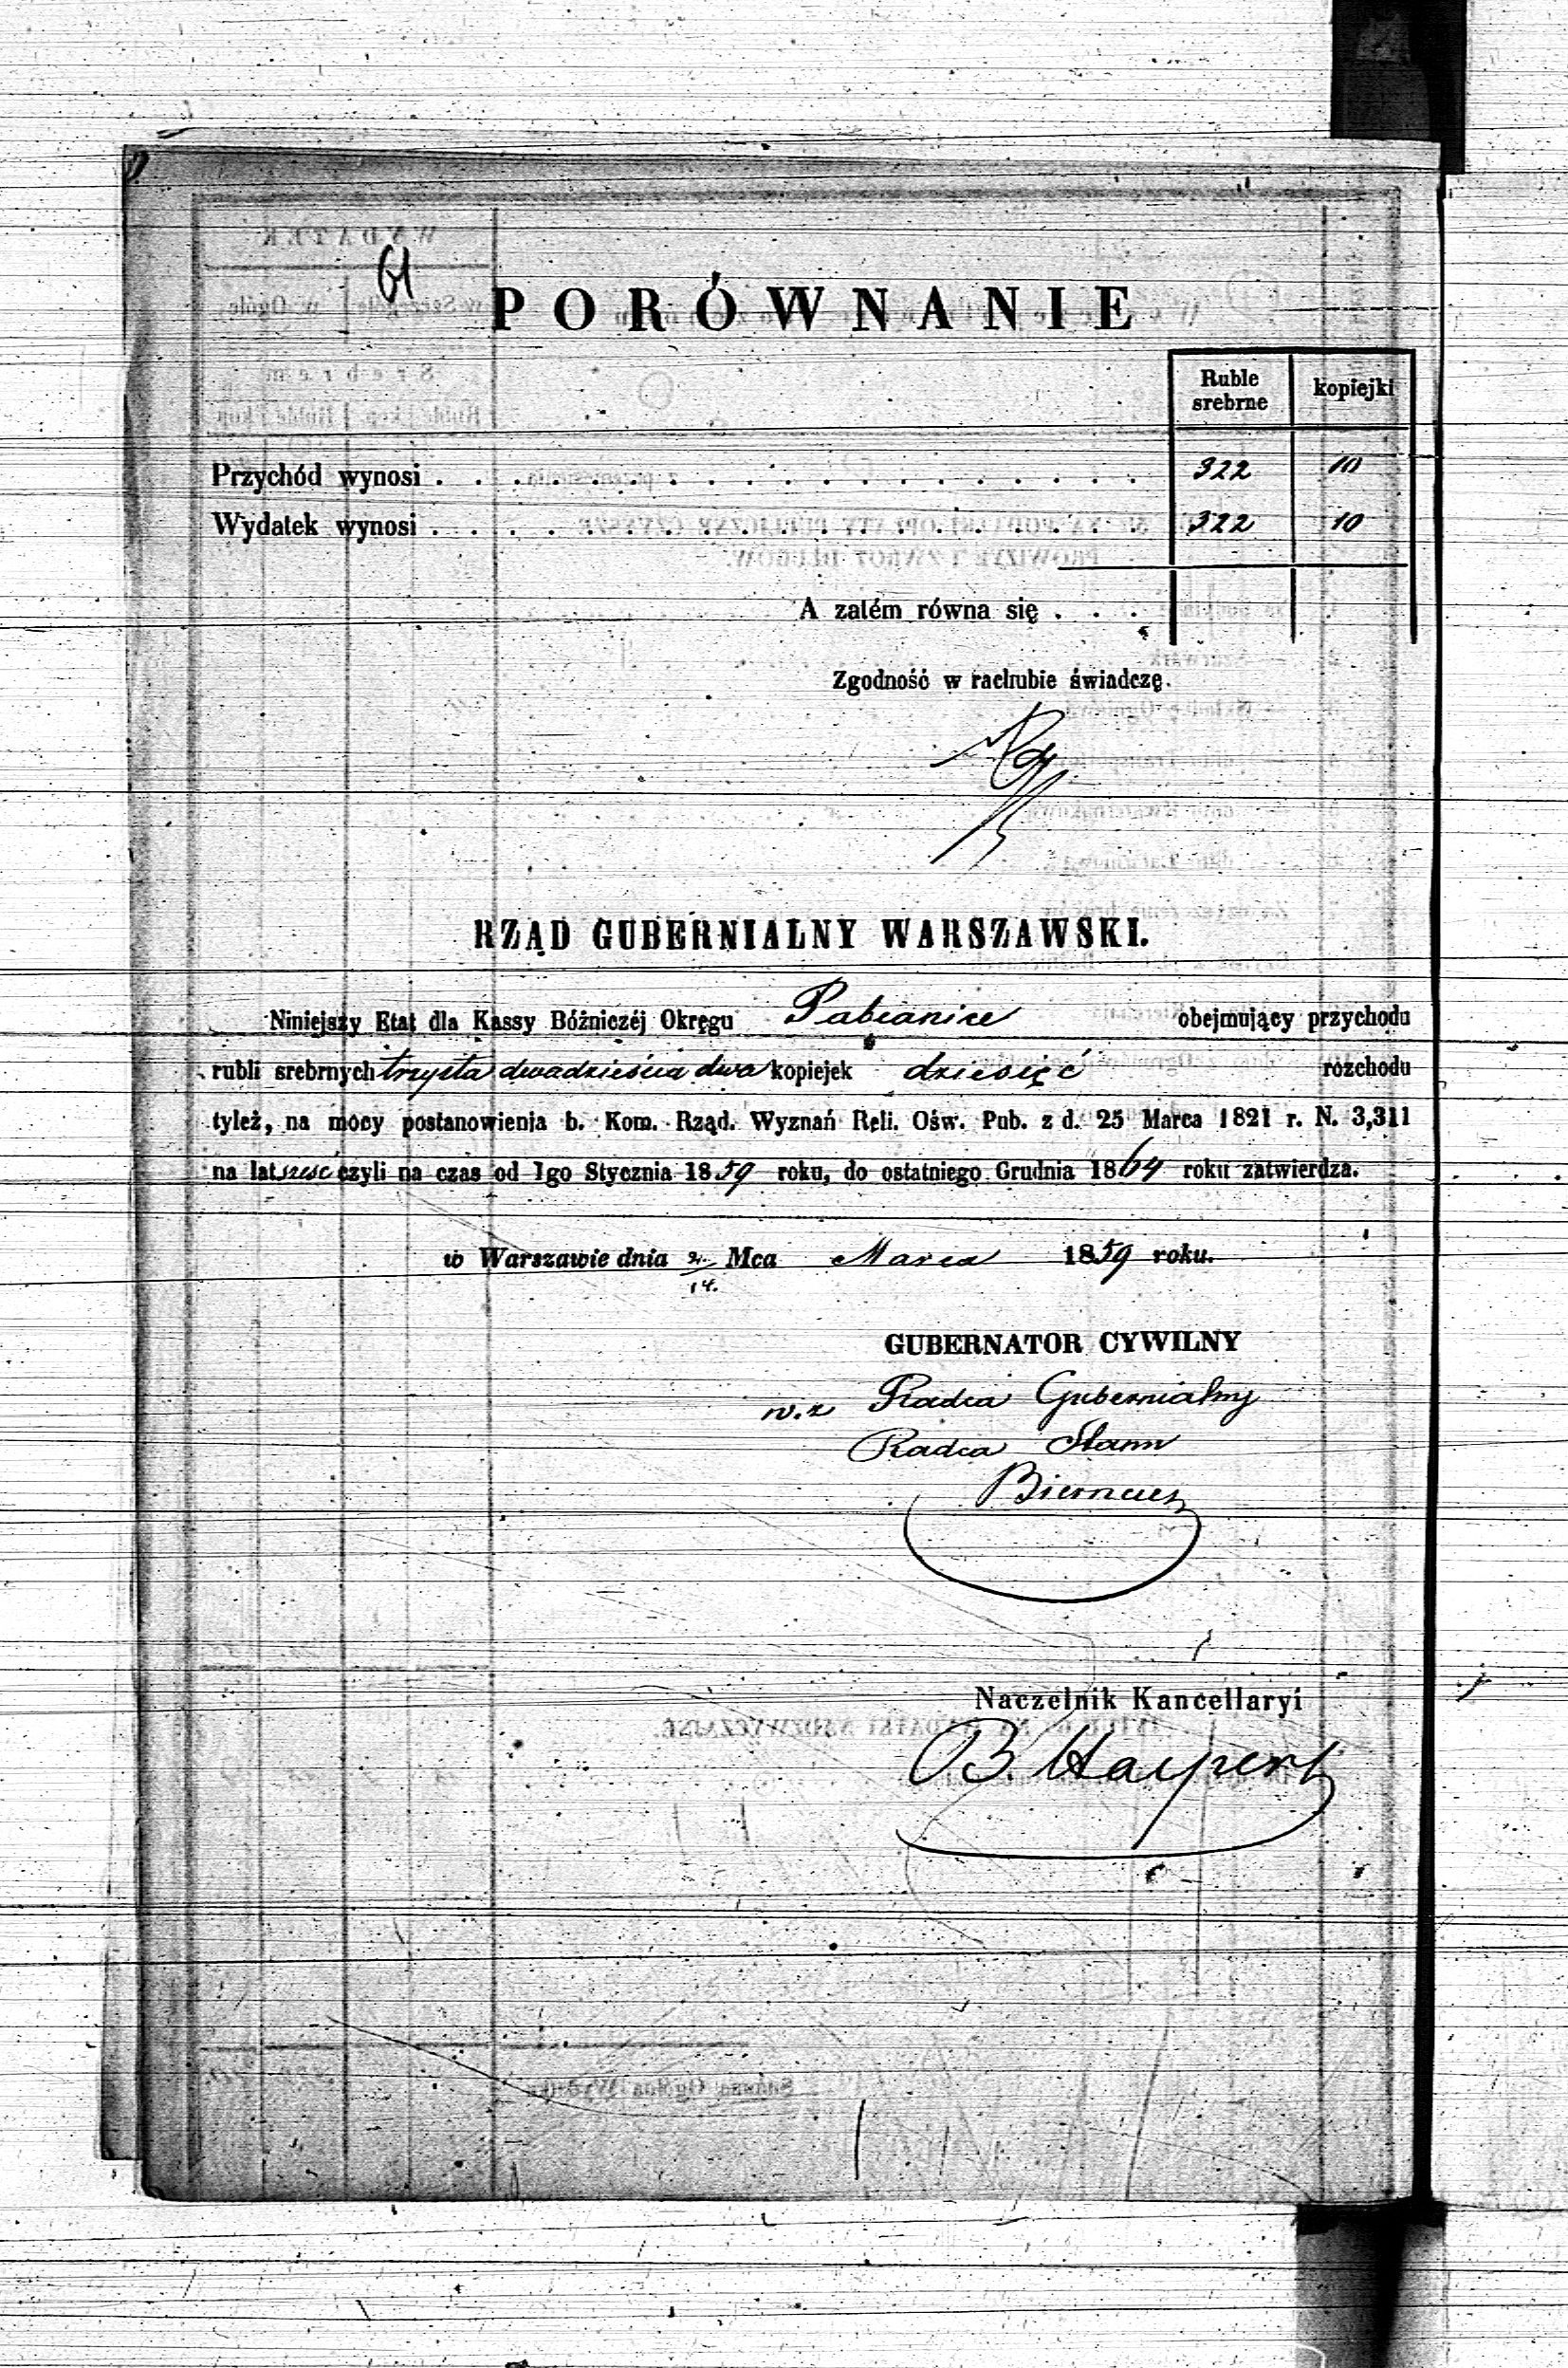 61
PORÓWNANIE
Ruble srebrne kopiejki
Przychód wynosi . . . . . . . . . . . . . . . . . . 322 10
Wydatek wynosi . . . . . . . . . . . . . . . . . . 322 10
A zatém równa się . . .
Zgodność w rachubie świadczę.
RZĄD GUBERNIALNY WARSZAWSKI.
Niniejszy Etat dla Kassy Bóżniczéj Okręgu Pabianice obejmujący przychodu
rubli srebrnych trzysta dwadzieścia dwa kopiejek dziesięć rozchodu
tyleż, na mocy postanowienia b. Kom. Rząd. Wyznań Reli. Ośw. Pub. z d. 25 Marca 1821 r. N. 3,311
na lat sześć czyli na czas od 1go Stycznia 1859 roku, do ostatniego Grudnia 1864 roku zatwierdza.
w Warszawie dnia 2/14. Mca Marca 1859 roku.
GUBERNATOR CYWILNY
w.z Radca Gubernialny
Radca Stanu
Naczelnik Kancellaryi
B. Halpert